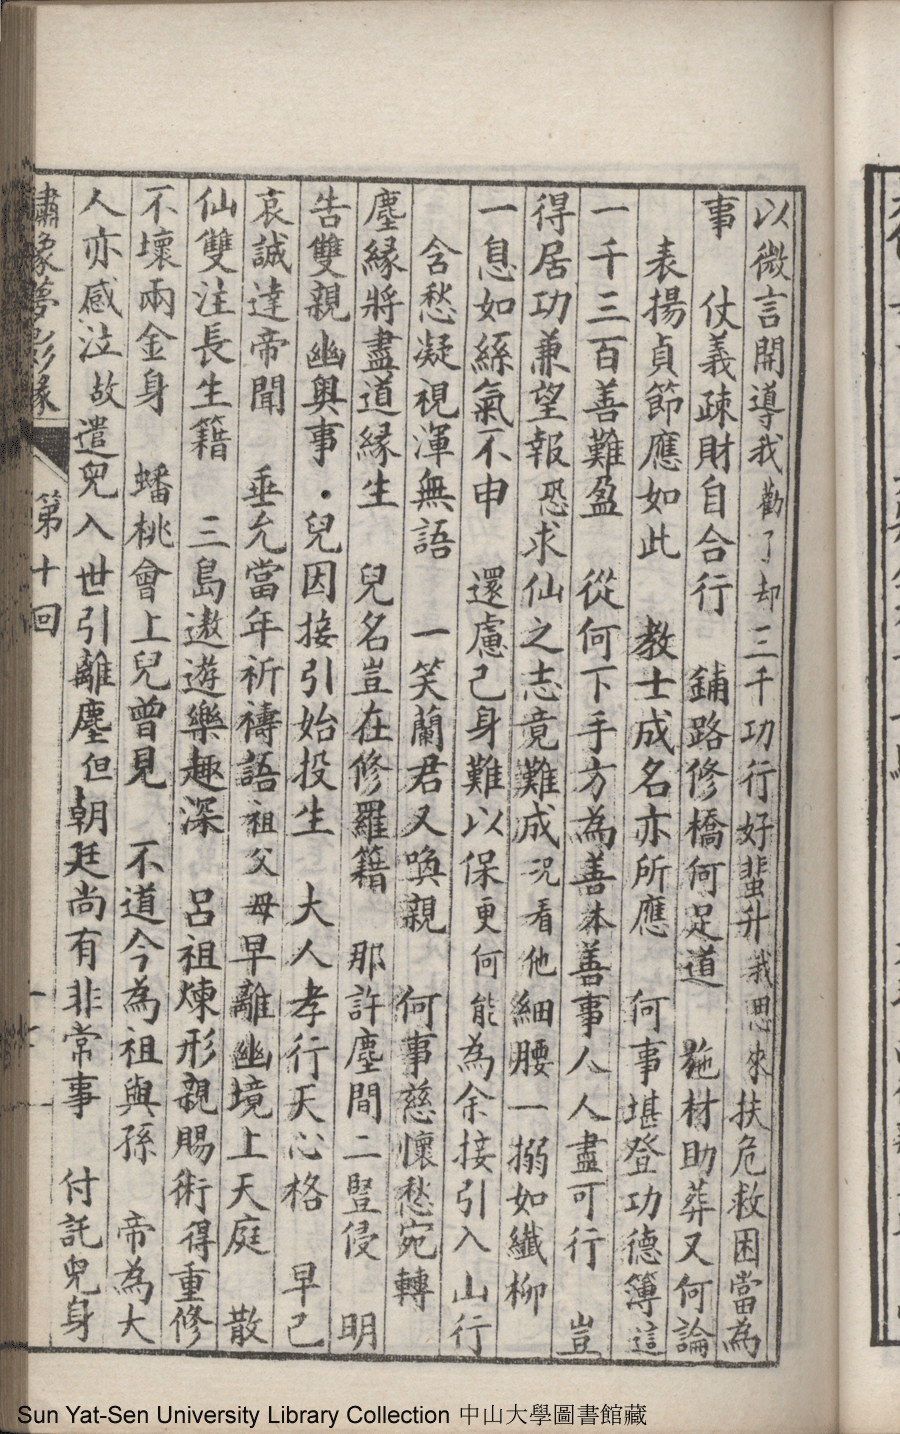 以微言開導我勸了却三千功行好蜚升我思來扶危救困當為
事　仗義疎財自合行　鋪路修橋何足道　施材助葬又何論
表揚貞節應如此　教士成名亦所應　何事堪登功德簿這
一千三百善難盈　從何下手方為善本善事人人盡可行　豈
得居功兼望報恐求仙之志竟難成况看他細腰一搦如纖柳
一息如絲氣不申　還慮己身難以保更何能為余接引入山行
含愁凝視渾無語　一笑蘭君又喚親　何事慈懷愁宛轉
塵緣將盡道緣生　兒名豈在修羅籍　那許塵間二豎侵　明
告雙親幽與事．兒因接引始投生　大人孝行天心格　早已
哀誠達帝聞　垂允當年祈禱語祖父母早離幽境上天庭　散
仙雙注長生籍　三島遨遊樂趣深　呂祖煉形親賜術得重修
不壞兩金身　蟠桃會上兒曾見　不道今為祖與孫　帝為大
人亦感泣故遣兒入世引離塵但朝廷尚有非常事　付託兒身
繡像夢影緣　第十回
Sun Yat-Sen University Library Collection 中山大學圖書館藏